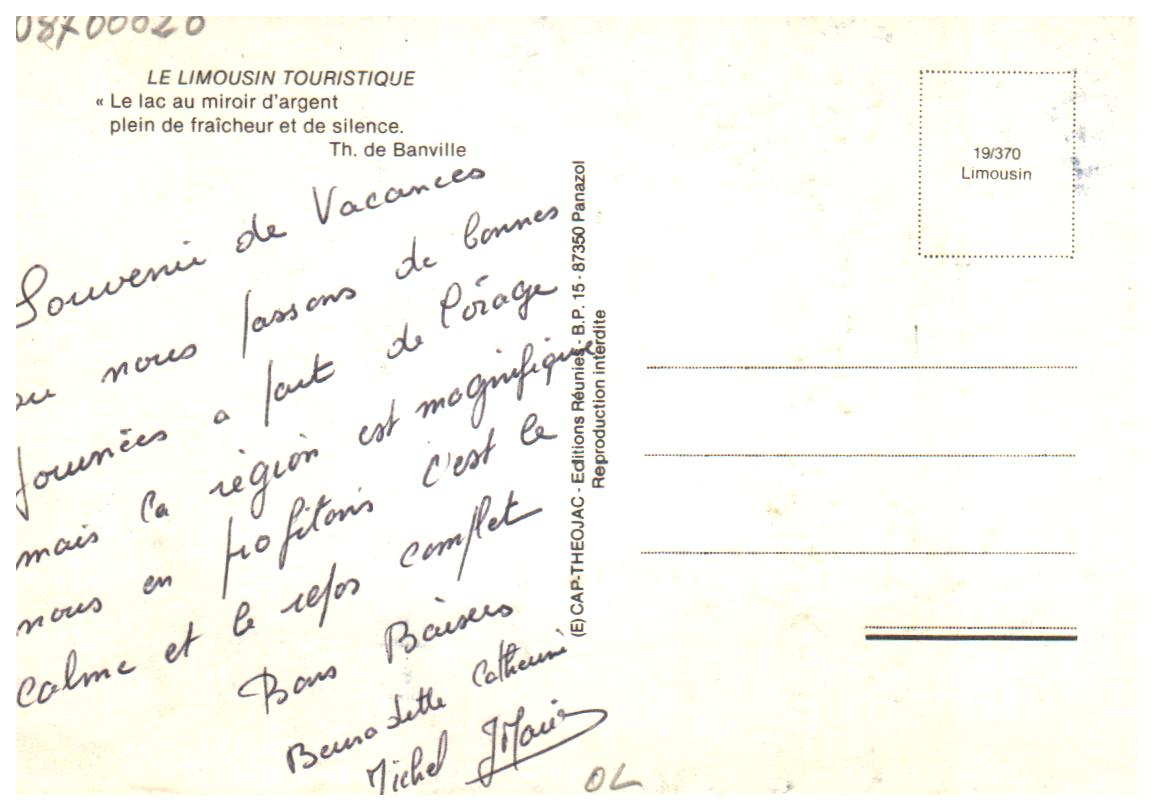 08700020
LE LIMOUSIN TOURISTIQUE
« Le lac au miroir d'argent
plein de fraîcheur et de silence.
Th. de Banville
Souvenir de Vacances
ou nous passons de bonnes
journées a part de l'orage
mais la région est magnifique
nous en profitons c'est le
calme et le repos complet
Bons Baisers
Bernadette Catherine
Michel JMarie
(E) CAP-THEOJAC - Editions Réunies - B.P. 15 - 87350 Panazol
Reproduction interdite
19/370
Limousin
OL